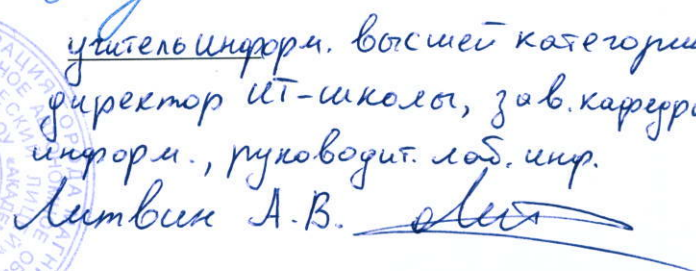 учитель информ. высшей категории
директор ИТ-школы, зав. кафедро
информ., руководит. лаб. инф.
Литвин А.В.